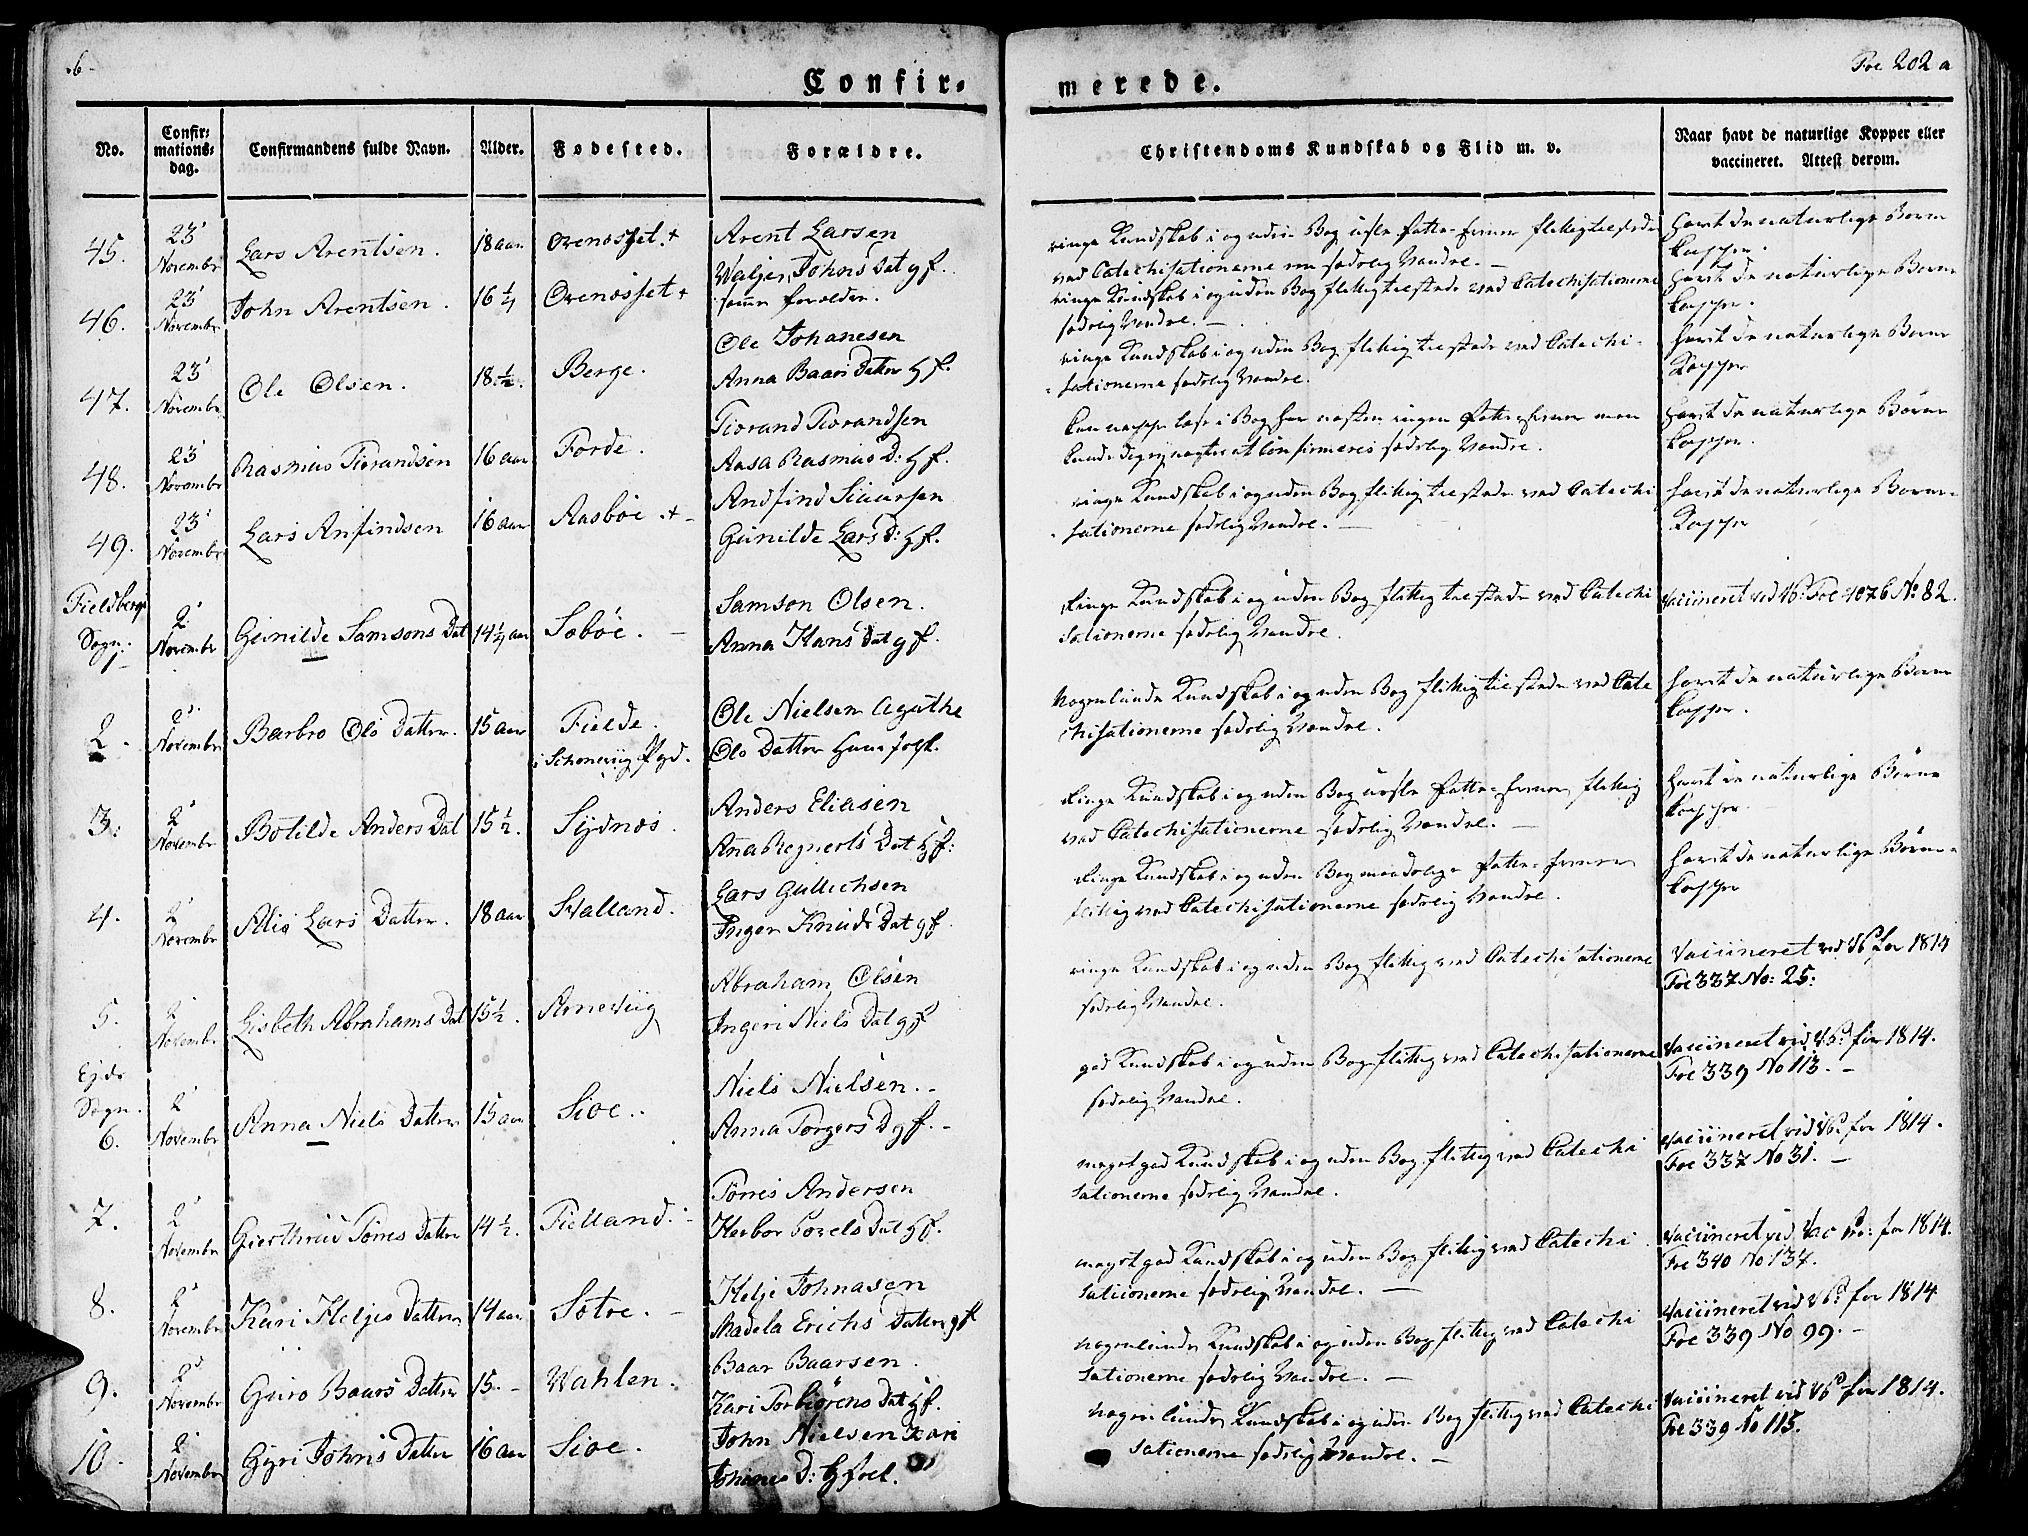 6
Foe 202 a
Confir=
merede.
No.
Confir=
mations=
dag.
Confirmandens fulde Navn.
Alder.
Fødested.
Forældre.
Christendoms Kundskab og Flid m. v.
Naar havt de naturlige Kopper eller
vaccineret. Attest derom.
45. 23' Novembr Lars Arentsen. 18 aar Arent Larsen
Johns Dat
ringe Kundskab i og uden Bog
ved Catechisationerne sædelig Vandel.
havt de naturlige Børne
Kopper.
46. 23' Novembr John Arentsen. 16 1/4 samme forældre.
ringe Kundskab i og uden Bog flittig tilstede ved Catechisationerne
sædelig Vandel.
havt de naturlige Børne
Kopper.
47. 23' Novembr Ole Olsen. 18 1/2. Berge. Ole Johanesen
Anna Baars Datter
ringe Kundskab i og uden Bog flittig tilstede ved Catechi-
sationerne sædelig Vandel.
havt de naturlige Børne
Kopper
48. 23' Novembr Rasmus Tiorandsen 16 aar Forde. Tiorand Tiorandsen
Aasa Rasmus D:
sædelig Vandel.
havt de naturlige Børne
Kopper.
49. 23' Novembr Lars Anfindsen 16 aar Aasböe + Andfind Siursen
Gunilde Lars D:
ringe Kundskab i og uden Bog flittig tilstede ved Catechi
sationerne sædelig Vandel.
havt de naturlige Børne-
Kopper
Fieldbergs
Sogn:
1 2' Novembr Gunilde Samsons Dat 14 1/4 aar Söböe. Samson Olsen.
Anna Hans Dat
Ringe Kundskab i og uden Bog flittig tilstede ved Catechi
sationerne sædelig Vandel.
Vacineret No 82.
2. 2' Novembr Barbro Ols Datter. 15 aar Fielde
i Schoneviig Pgd. Ole Nielsen Agathe
Ols Datter
Nogenlunde Kundskab i og uden Bog flittig tilstede ved Cate
chisationerne sædelig Vandel.
havt de naturlige Børne
Kopper.
3. 2' Novembr Botilde Anders Dat 15 1/2. Sydnæs. Anders Eliasen
Ana Regnerts Dat
Ringe Kundskab i og uden Bog flittig
ved Catechisationerne sædelig Vandel.
havt de naturlige Børne
Kopper
4. 2' Novembr Alis Lars Datter. 18 aar Lars Gullichsen
Inger Knuds Dat
Ringe Kundskab i og uden Bog
flittig ved Catechisationerne sædelig Vandel.
havt de naturlige Børne-
Kopper
5. 2' Novembr Lisbeth Abrahams Dat 15 1/2. Arneviig Abraham Olsen
Ingeri Niels Dat
ringe Kundskab i og uden Bog flittig ved Catechisationerne
sædelig Vandel.
Vaciineret ved for 1814
Foe 337 No: 25.
Eyds
Sogn.
6. 2' Novembr Anna Niels Datter 15 aar Sioe. Niels Nielsen.
Anna Torgers D
god Kundskab i og uden Bog flittig ved Catechisationerne
sædelig Vandel.
Vaciineret ved for 1814.
Foe 339 No 113.
7. 2' Novembr Gierthrud Törres Datter 14 1/2. Fielland. Törres Andersen
Herbor Dat
meget god Kundskab i og uden Bog flittig ved Catechi
sationerne sædelig Vandel.
Vaciineret ved for 1814.
Foe 337 No 31.
8. 2' Novembr Kari Heljes Datter 14 aar Helje Johnasen
Madela Erichs Datter
meget god Kundskab i og uden Bog flittig ved Catechi
sationerne sædelig Vandel.
Vaciineret ved Vac for 1814.
Foe 340 No 137.
9. 2' Novembr Guro Baars Datter 15. Wahlen. Baar Baarsen.
Kari Torbiörens Dat
nogenlunde Kundskab i og uden Bog flittig ved Catechi
sationerne sædelig Vandel.
Vaciineret ved for 1814
Foe 339 No 99.
10. 2' Novembr Gyri Johns Datter 16 aar Sioe. John Nielsen Kari
D:
nogenlunde Kundskab i og uden Bog flittig ved Catechi
sationerne sædelig Vandel.
Vaciineret ved for 1814.
Foe 339 No 115.